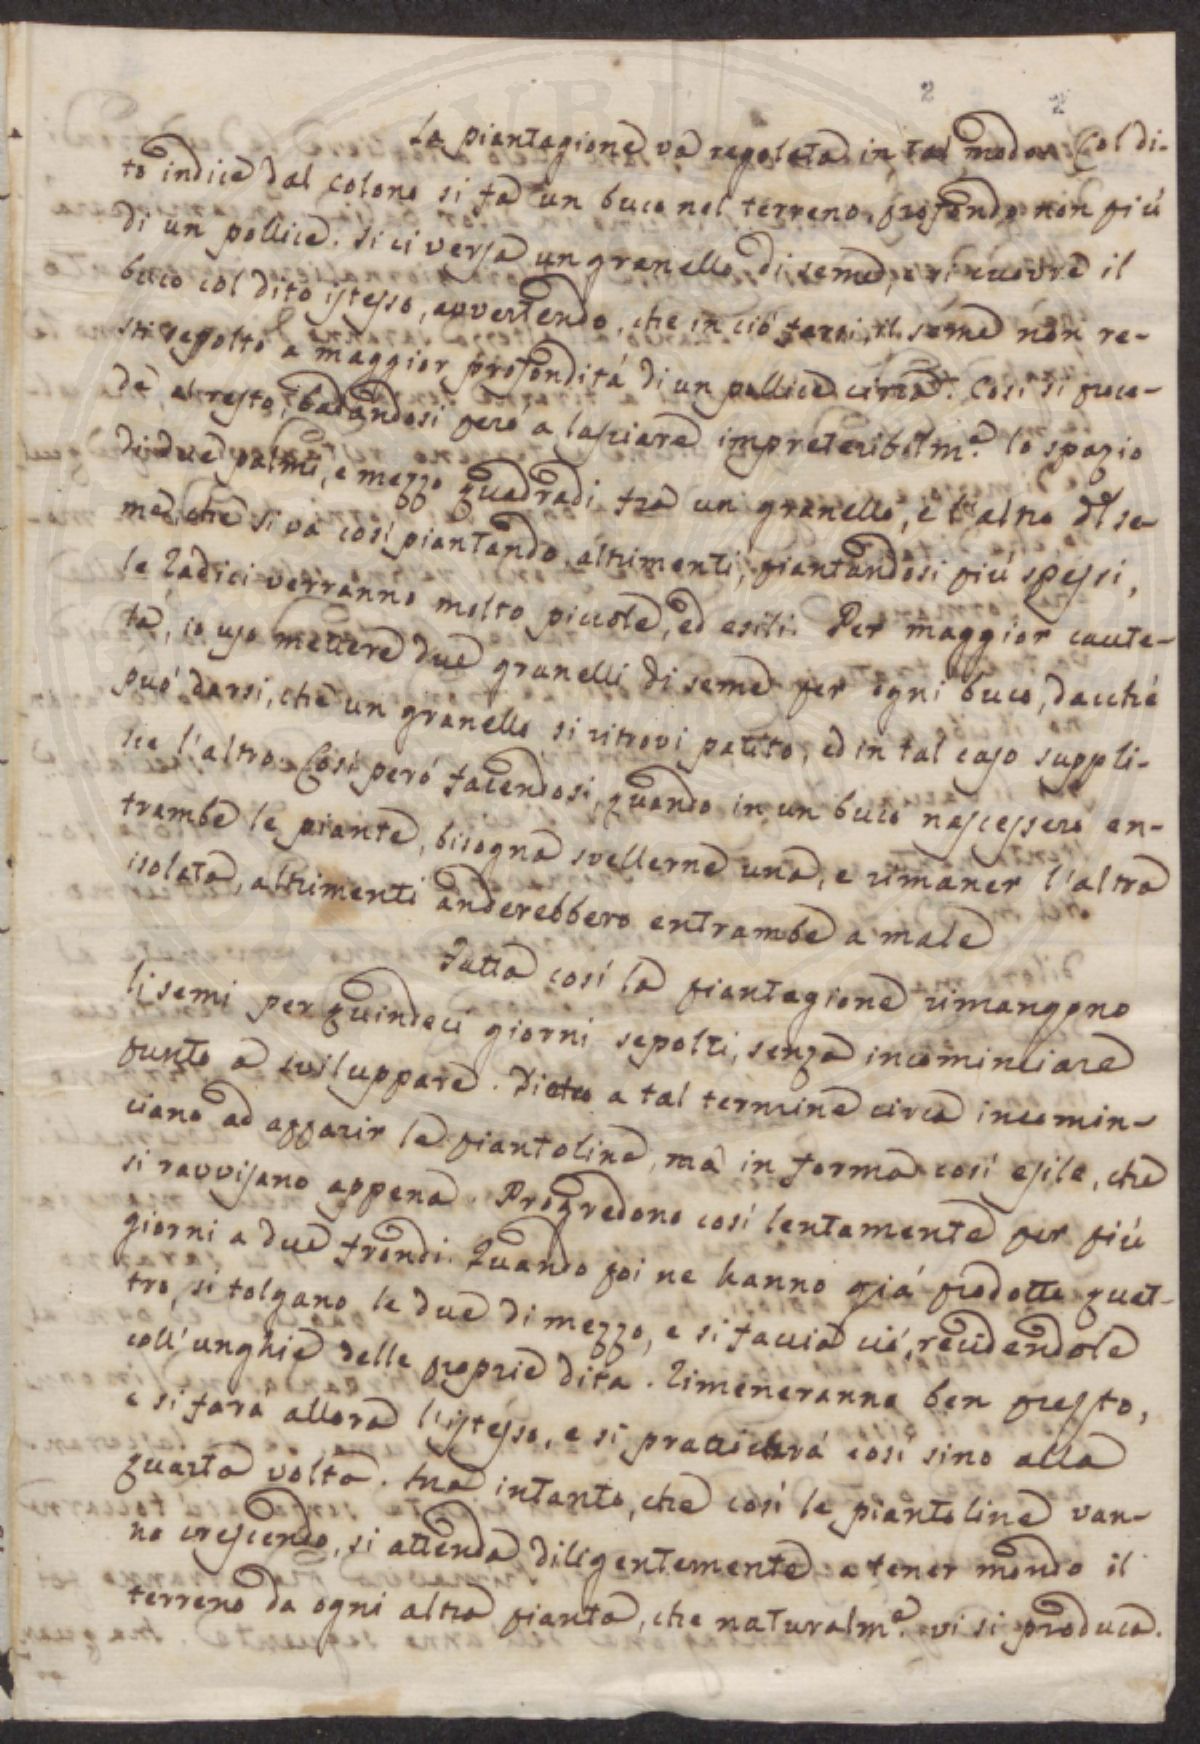 2 2
La piantagione va regolata in tal modo. Col di-
to indice dal colono si fa un buco nel terreno, profondo non più
di un pollice. Si ci versa un granello di seme, e si cuovre il
buco col dito istesso, avvertendo, che in ciò farsi, il seme non re-
sti sepolto a maggior profondità di un pollice circa. Così si proce-
de al resto, badandosi però a lasciare impreteribilm.e lo spazio
di due palmi, e mezzo quadradi tra un granello, e l'altro di se-
me, che si va così piantando, altrimenti, piantandosi più spessi,
le radici verranno molto piccole, ed esili. Per maggior caute-
la, io uso mettere due granelli di seme per ogni buco, dacché
può darsi, che un granello si ritrovi patito, ed in tal caso suppli-
sce l'altro. Così però facendosi, quando in un buco nascessero en-
trambe le piante, bisogna svellerne una, e rimaner l'altra
isolata, altrimenti anderebbero entrambe a male
Fatta così la piantagione rimangono
li semi per quindeci giorni sepolti, senza incominciare
punto a sviluppare. Dietro a tal termine circa incomin-
ciano ad apparir le piantoline, ma in forma così esile, che
si ravvisano appena. Progredono così lentamente per più
giorni a due frondi. Quando poi ne hanno già prodotte quat-
tro, si tolgano le due di mezzo, e si faccia ciò, recidendole
coll'unghie delle proprie dita. Rimeneranno ben presto,
e si farà allora l'istesso, e si pratticherà così sino alla
quarta volta. Ma intanto, che così le piantoline van-
no crescendo, si attenda diligentemente a tener mondo il
terreno da ogni altra pianta, che naturalm.e vi si produca.